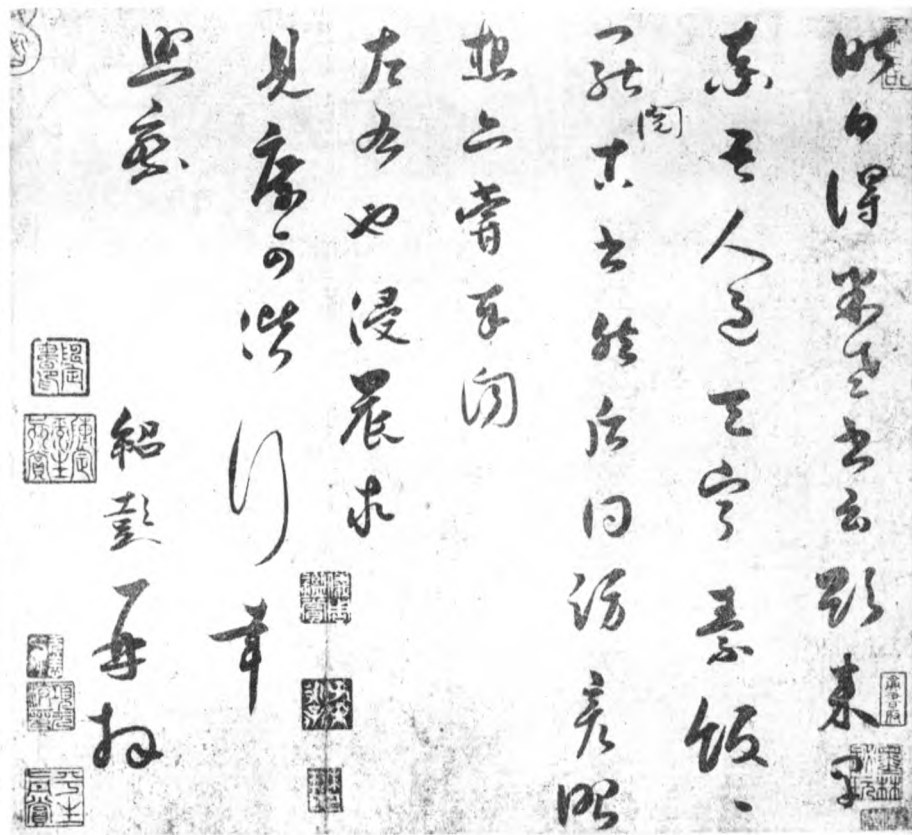 昨日得米老書云欲來早
率吾人過天寧素飯〻
罷閱古書然後同訪彥昭
想亦嘗奉聞
左右也侵晨求
見庶可偕行幸
照察
紹彭再拜
墨林秘玩
平生真賞